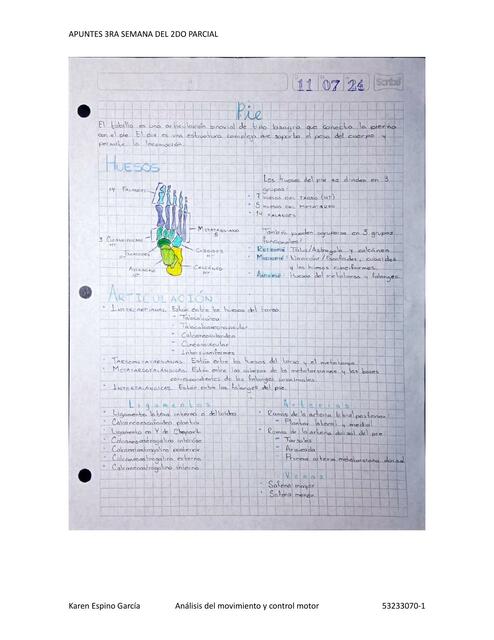 APUNTES 3RA SEMANA DEL 2DO PARCIAL
11 07 24 Scribe
Pie
El tobillo es una articulación sinovial de tipo bisagra que conecta la pierna
con el pie. El pie es una estructura compleja que soporta el peso del cuerpo y
permite la locomoción.
HUESOS
Los huesos del pie se dividen en 3
grupos:
7 HUESOS DEL TARSO (HT)
5 HUESOS DEL METATARSO
14 FALANGES
También pueden agruparse en 3 grupos
funcionales:
RETROPIE: Talus/Astrágalo y calcáneo
MEDIOPIE: Navicular/Escafoides, cuboides
y los huesos cuneiformes.
ANTEPIE: Huesos del metatarso y falanges.
14 FALANGES
METATARSIANOS
5
3 CUNEIFORMES
HT
CUBOIDES
HT
NAVICULAR
HT
ASTRÁGALO
HT
CALCÁNEO
HT
ARTICULACIÓN
INTERTARSIANAS. Están entre los huesos del tarso.
- Talocalcánea
- Talocalcaneonavicular
- Calcaneocuboidea
- Cuneonavicular
- Intercuneiformes
TARSOMETATARSIANAS. Están entre los huesos del tarso y el metatarso.
METATARSOFALÁNGICAS. Están entre las cabezas de los metatarsianos y las bases
correspondientes de las falanges proximales.
INTERFALÁNGICAS. Están entre las falanges del pie.
Ligamentos
Ligamento lateral interno o deltoideo
Calcaneocuboideo plantar
Ligamento en Y de Chopart
Calcaneoastragalino interóseo
Calcaneoastragalino posterior
Calcaneoastragalino externo
Calcaneoastragalino interno
Arterias
Ramas de la arteria tibial posterior
- Plantar lateral y medial
Ramas de la arteria dorsal del pie
- Tarsales
- Arqueada
- Primera arteria metatarsiana dorsal
Venas
Safena mayor
Safena menor
Karen Espino García Análisis del movimiento y control motor 53233070-1